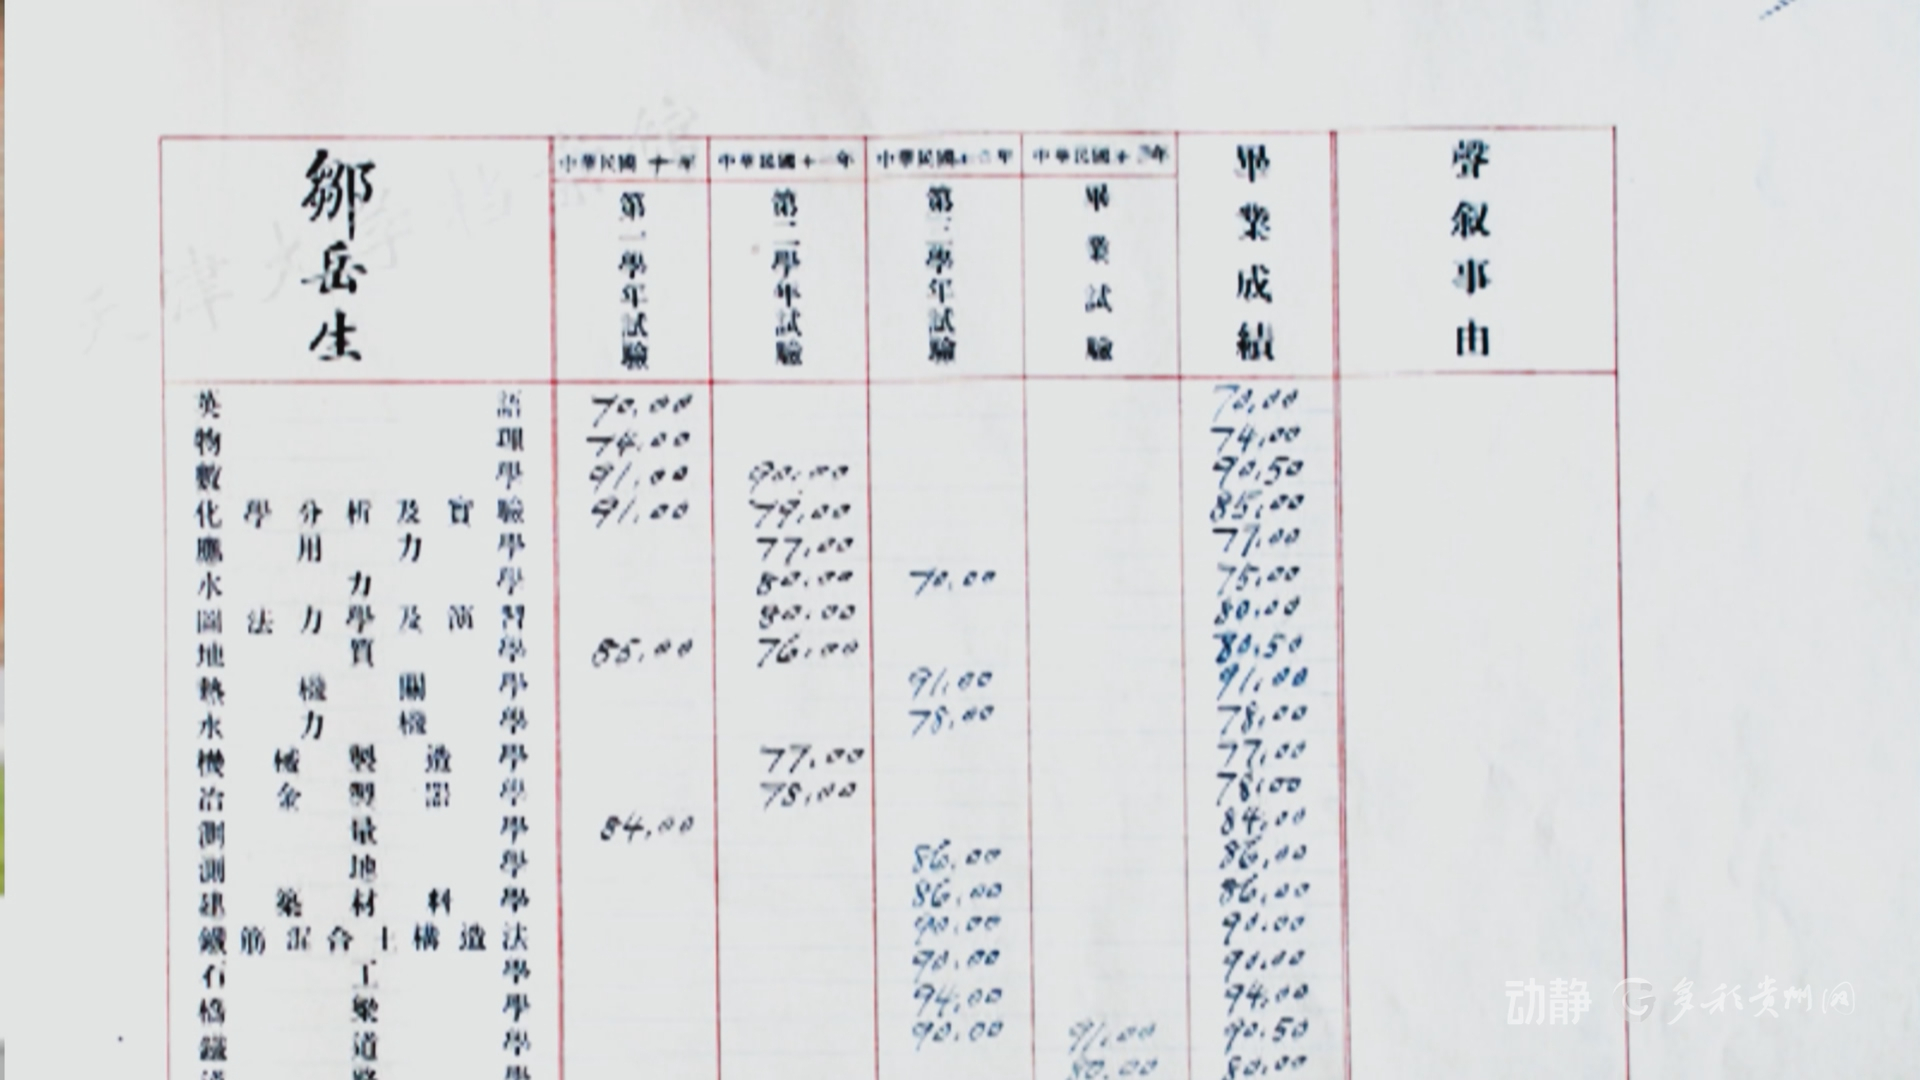 鄒岳生
中華民國十年 中華民國十一年 中華民國十二年 中華民國十 年
第一學年試驗 第二學年試驗 第三學年試驗 畢業試驗 畢業成績 聲叙事由
英語 70.00 70.00
物理 74.00 74.00
數學 91.00 90.00 90.50
化學分析及實驗 91.00 79.00 85.00
應用力學 77.00 77.00
水力學 80.00 70.00 75.00
圖法力學及演習 80.00 80.00
地質學 85.00 76.00 80.50
熱機關學 91.00 91.00
水力機學 78.00 78.00
機械製造學 77.00 77.00
冶金製器學 78.00 78.00
測量學 84.00 84.00
測地學 86.00 86.00
建築材料學 86.00 86.00
鐵筋混合土構造法 90.00 90.00
石工學 90.00 90.00
橋梁學 94.00 94.00
鐵道學 90.00 91.00 90.50
道路學 80.00 80.00
天津大学档案馆
动静 多彩贵州网